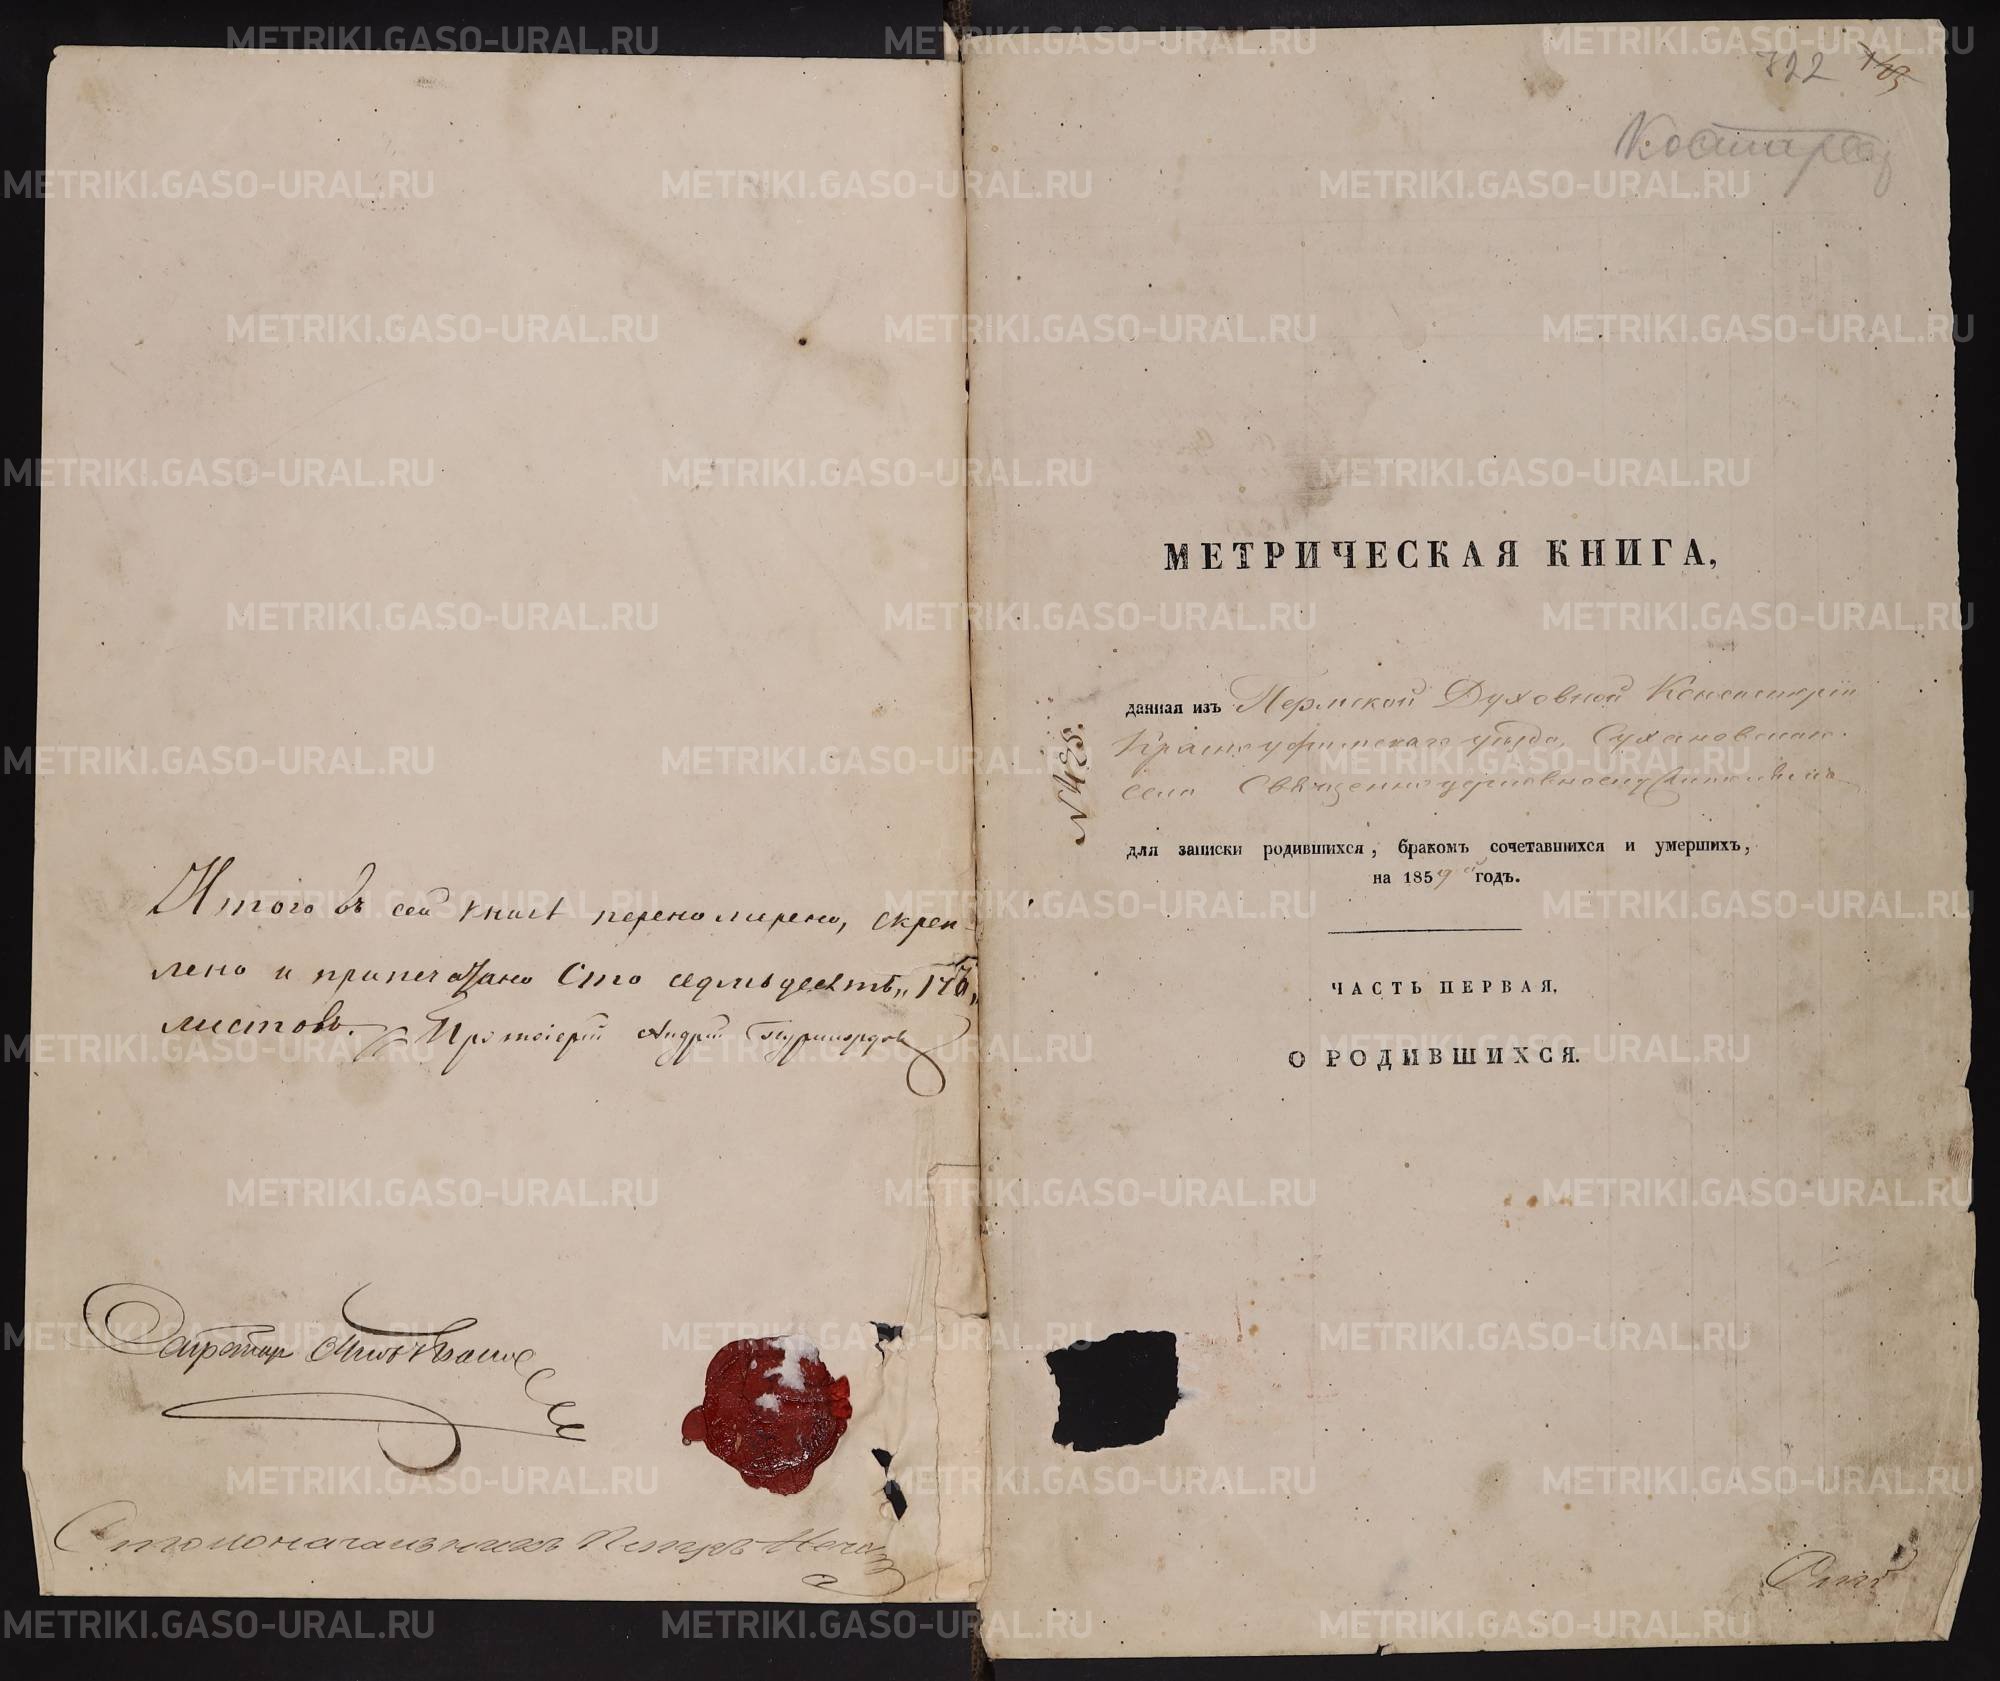 Итого въ сей книгѣ перенумерено, скреп-
лено и припечатано Сто семьдесятъ „170„
листовъ. Протоіерей Андрей
Секретарь
Столоначальникъ
722
МЕТРИЧЕСКАЯ КНИГА,
данная изъ Пермской Духовной Консисторіи
Красноуфимскаго уѣзда, Сухановскаго
села Священноцерковнослужителямъ
№ 428.
для записки родившихся, бракомъ сочетавшихся и умершихъ,
на 1859й годъ.
ЧАСТЬ ПЕРВАЯ,
О РОДИВШИХСЯ.
METRIKI.GASO-URAL.RU